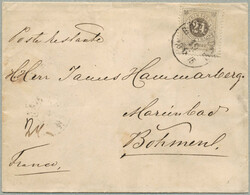 Poste restante
24
Herr James Hammarberg.
Marienbad
Böhmen.
24
Franco.